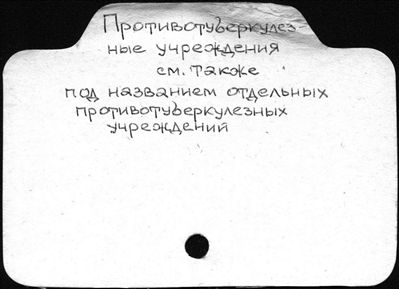 Противотуберкулез-
ные учреждения
см. также
под названием отдельных
противотуберкулезных
учреждений